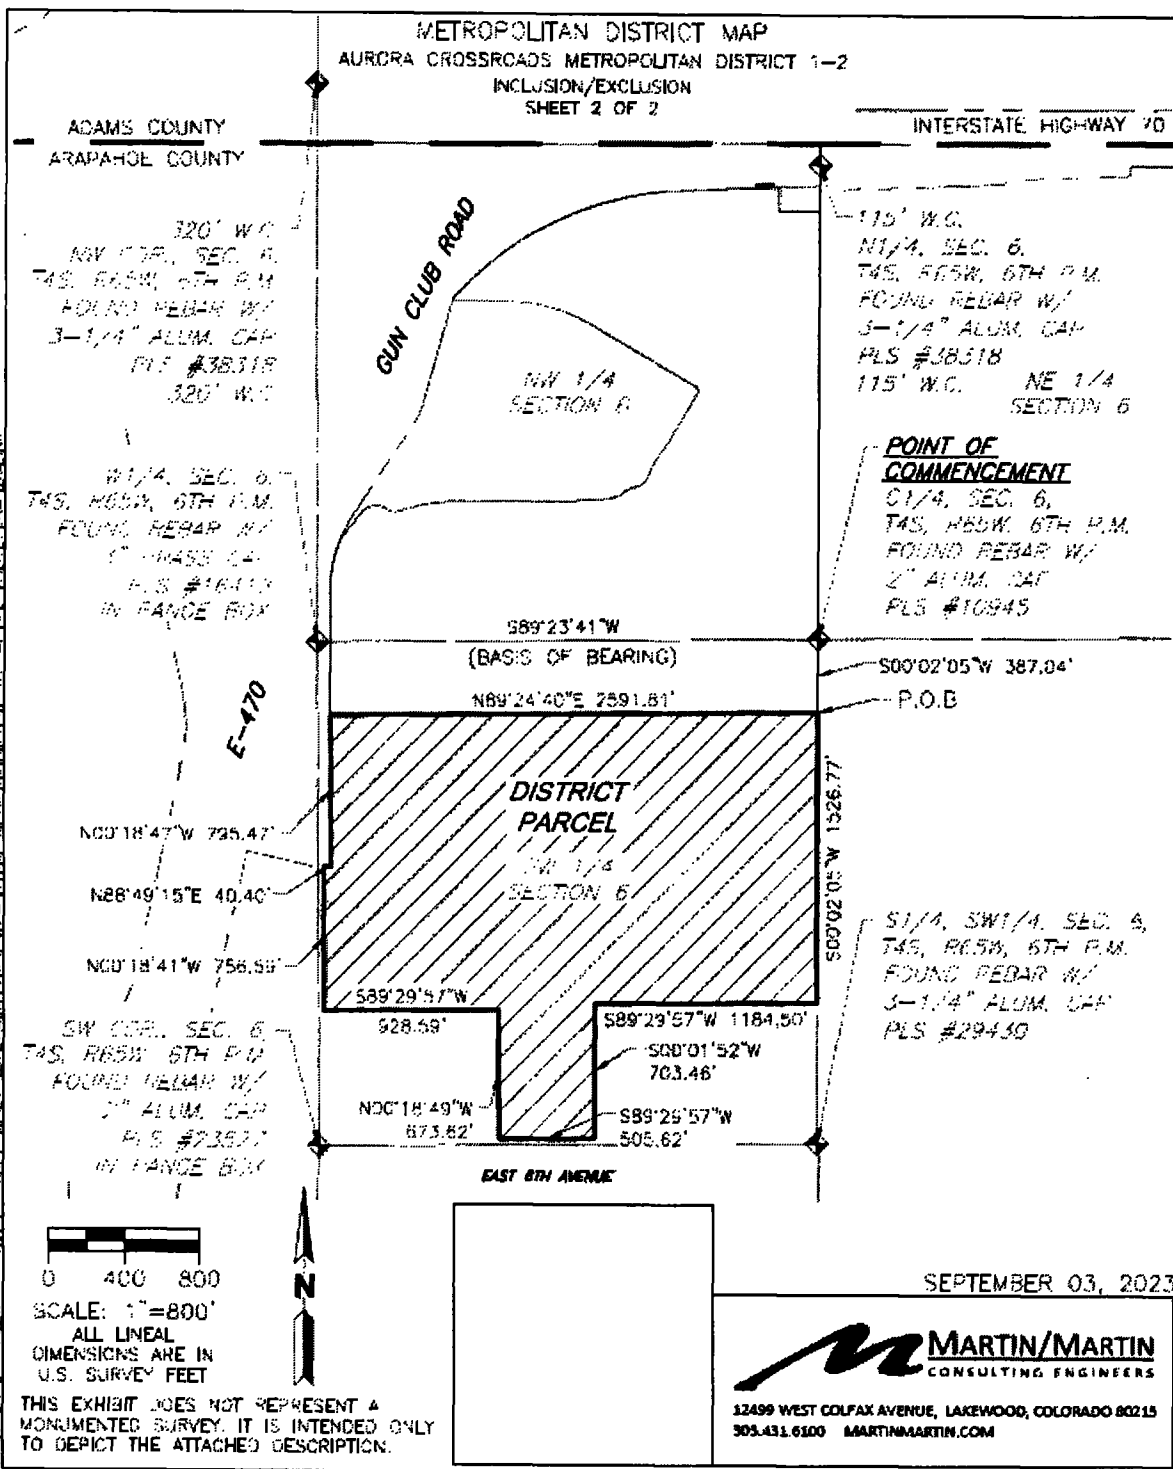 METROPOLITAN DISTRICT MAP
AURORA CROSSROADS METROPOLITAN DISTRICT 1-2
INCLUSION/EXCLUSION
SHEET 2 OF 2
ADAMS COUNTY
ARAPAHOE COUNTY
INTERSTATE HIGHWAY 70
320' W.C.
NW COR., SEC. 6,
T4S, R65W, 6TH P.M.
FOUND REBAR W/
3-1/4" ALUM. CAP
PLS #38318
320' W.C.
GUN CLUB ROAD
NW 1/4
SECTION 6
115' W.C.
N1/4, SEC. 6,
T4S, R65W, 6TH P.M.
FOUND REBAR W/
3-1/4" ALUM. CAP
PLS #38318
115' W.C.
NE 1/4
SECTION 6
W1/4, SEC. 6,
T4S, R65W, 6TH P.M.
FOUND REBAR W/
1" BRASS CAP
PLS
IN RANGE BOX
POINT OF
COMMENCEMENT
C1/4, SEC. 6,
T4S, R65W, 6TH P.M.
FOUND REBAR W/
2" ALUM. CAP
PLS #10945
S89°23'41"W
(BASIS OF BEARING)
S00°02'05"W 387.04'
N89°24'40"E 2591.81'
P.O.B
E-470
DISTRICT
PARCEL
SW 1/4
SECTION 6
N00°18'47"W 795.47'
N88°49'15"E 40.40'
N00°18'41"W 756.59'
S00°02'05"W 1526.77'
S89°29'57"W
928.59'
S89°29'57"W 1184.50'
S00°01'52"W
703.46'
N00°18'49"W
673.62'
S89°29'57"W
505.62'
S1/4, SW1/4, SEC. 6,
T4S, R65W, 6TH P.M.
FOUND REBAR W/
3-1/4" ALUM. CAP
PLS #29430
SW COR., SEC. 6
T4S, R65W 6TH P.M.
FOUND REBAR W/
2" ALUM. CAP
PLS
IN RANGE BOX
EAST 8TH AVENUE
0 400 800
SCALE: 1"=800'
ALL LINEAL
DIMENSIONS ARE IN
U.S. SURVEY FEET
N
THIS EXHIBIT DOES NOT REPRESENT A
MONUMENTED SURVEY. IT IS INTENDED ONLY
TO DEPICT THE ATTACHED DESCRIPTION.
SEPTEMBER 03, 2023
MARTIN/MARTIN
CONSULTING ENGINEERS
12499 WEST COLFAX AVENUE, LAKEWOOD, COLORADO 80215
303.431.6100 MARTINMARTIN.COM